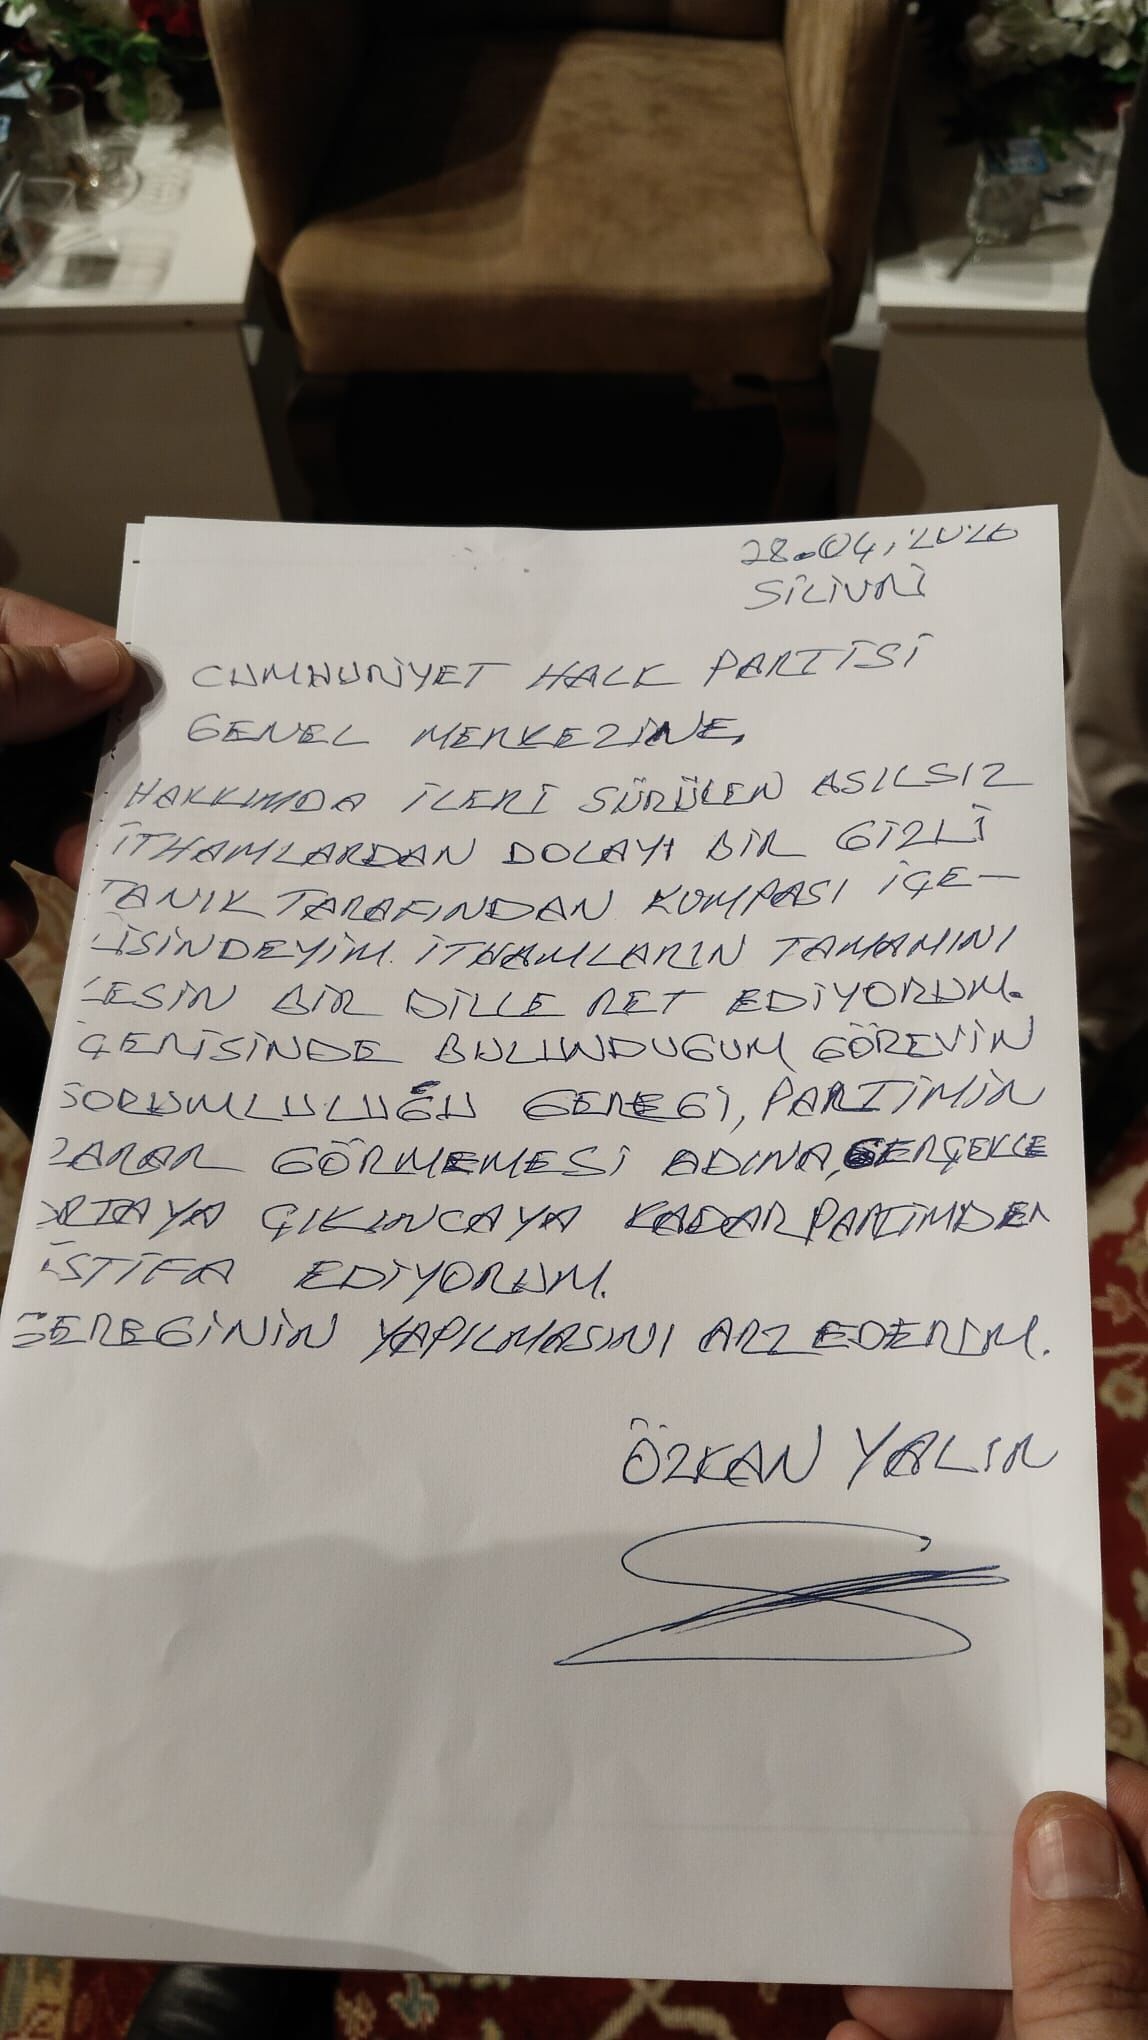 28.04.2026
SİLİVRİ
CUMHURİYET HALK PARTİSİ
GENEL MERKEZİNE,
HAKKIMDA İLERİ SÜRÜLEN ASILSIZ
İTHAMLARDAN DOLAYI BİR GİZLİ
TANIK TARAFINDAN KUMPASI İÇE-
RİSİNDEYİM. İTHAMLARIN TAMAMINI
KESİN BİR DİLLE RET EDİYORUM.
İÇERİSİNDE BULUNDUGUM GÖREVİN
SORUMLULUĞU GEREGİ, PARTİMİN
ZARAR GÖRMEMESİ ADINA, GERÇEKLE
ORTAYA ÇIKINCAYA KADAR PARTİMDEN
İSTİFA EDİYORUM.
GEREGİNİN YAPILMASINI ARZ EDERİM.
ÖZKAN YALIM